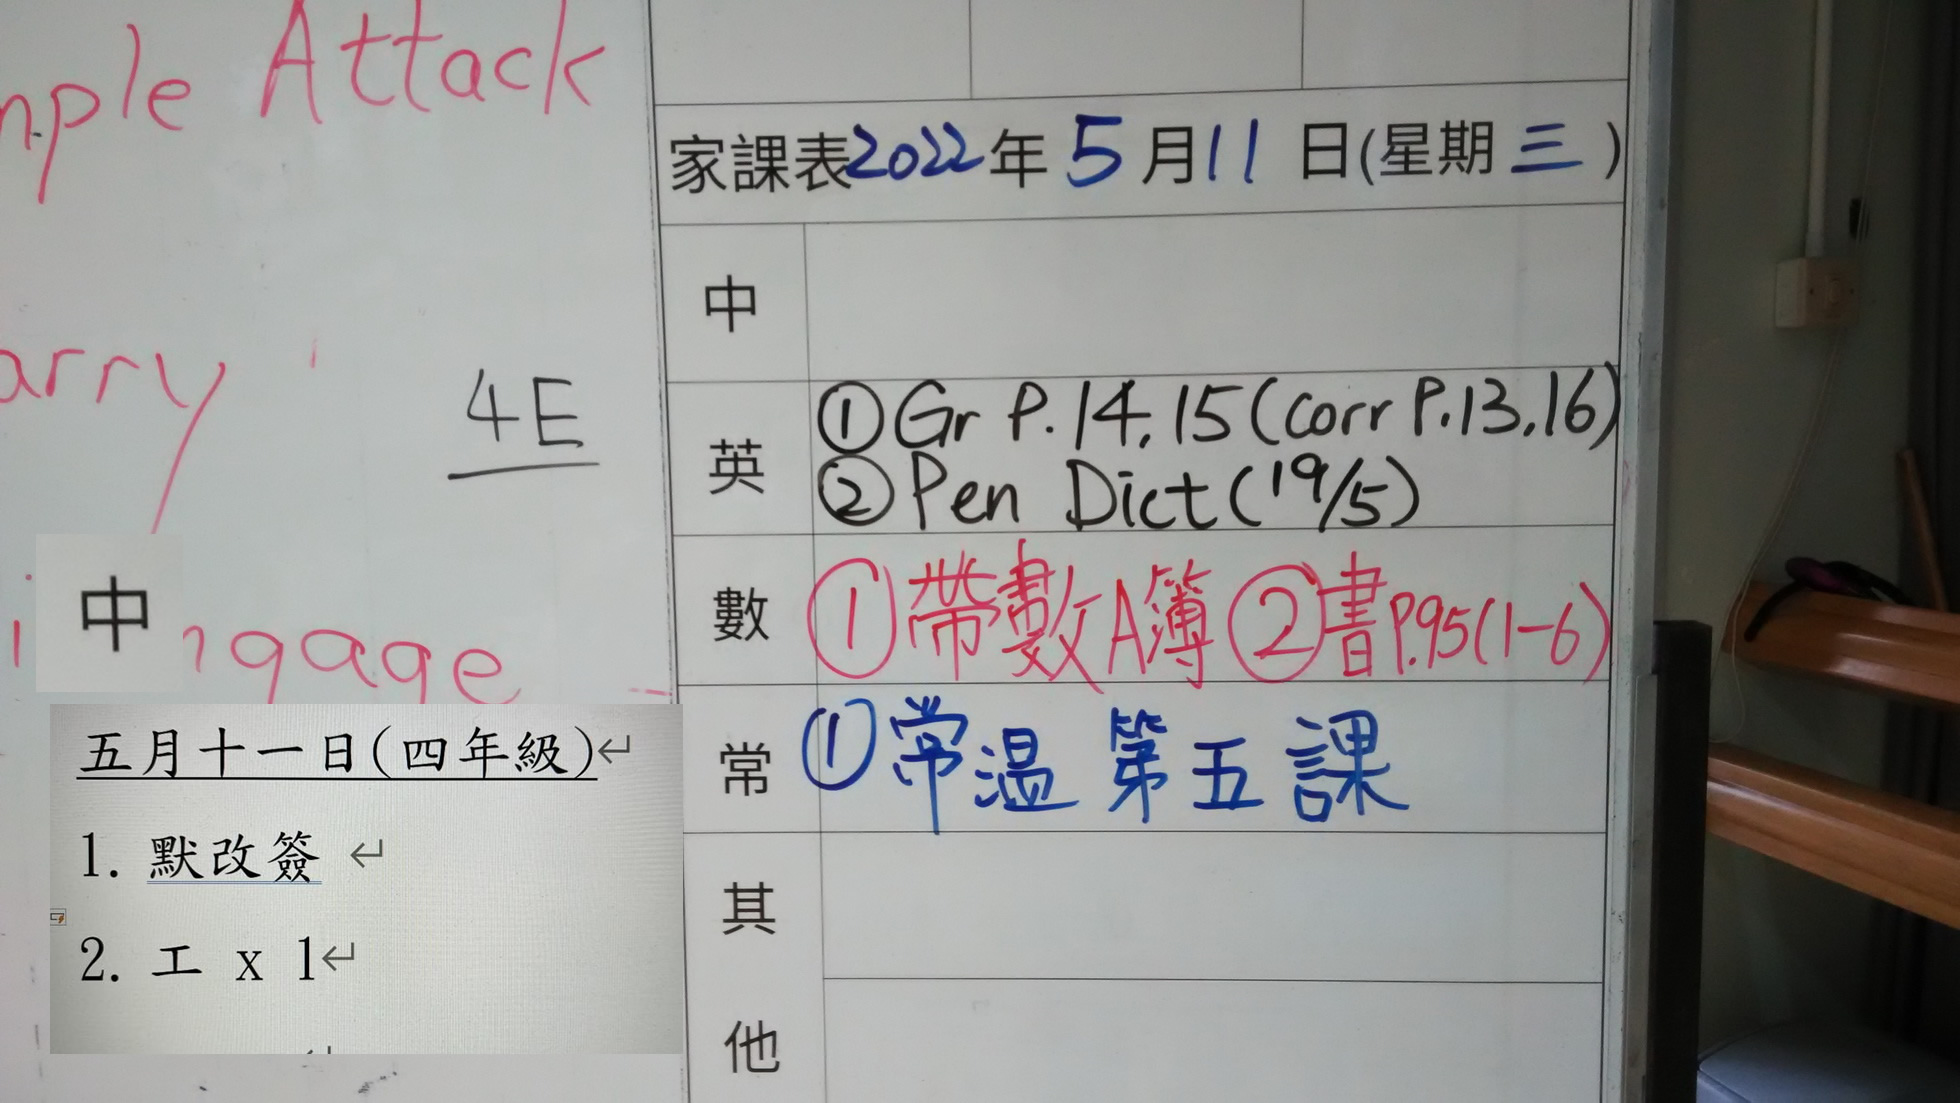 mple Attack
arry
4E
ngage
中
五月十一日(四年級)
1. 默改簽
2. 工 x 1
家課表2022年5月11日(星期三)
中
英
①Gr P.14,15(corr P.13,16)
②Pen Dict(19/5)
數
①帶數A簿②書P.95(1-6)
常
①常温 第五課
其
他